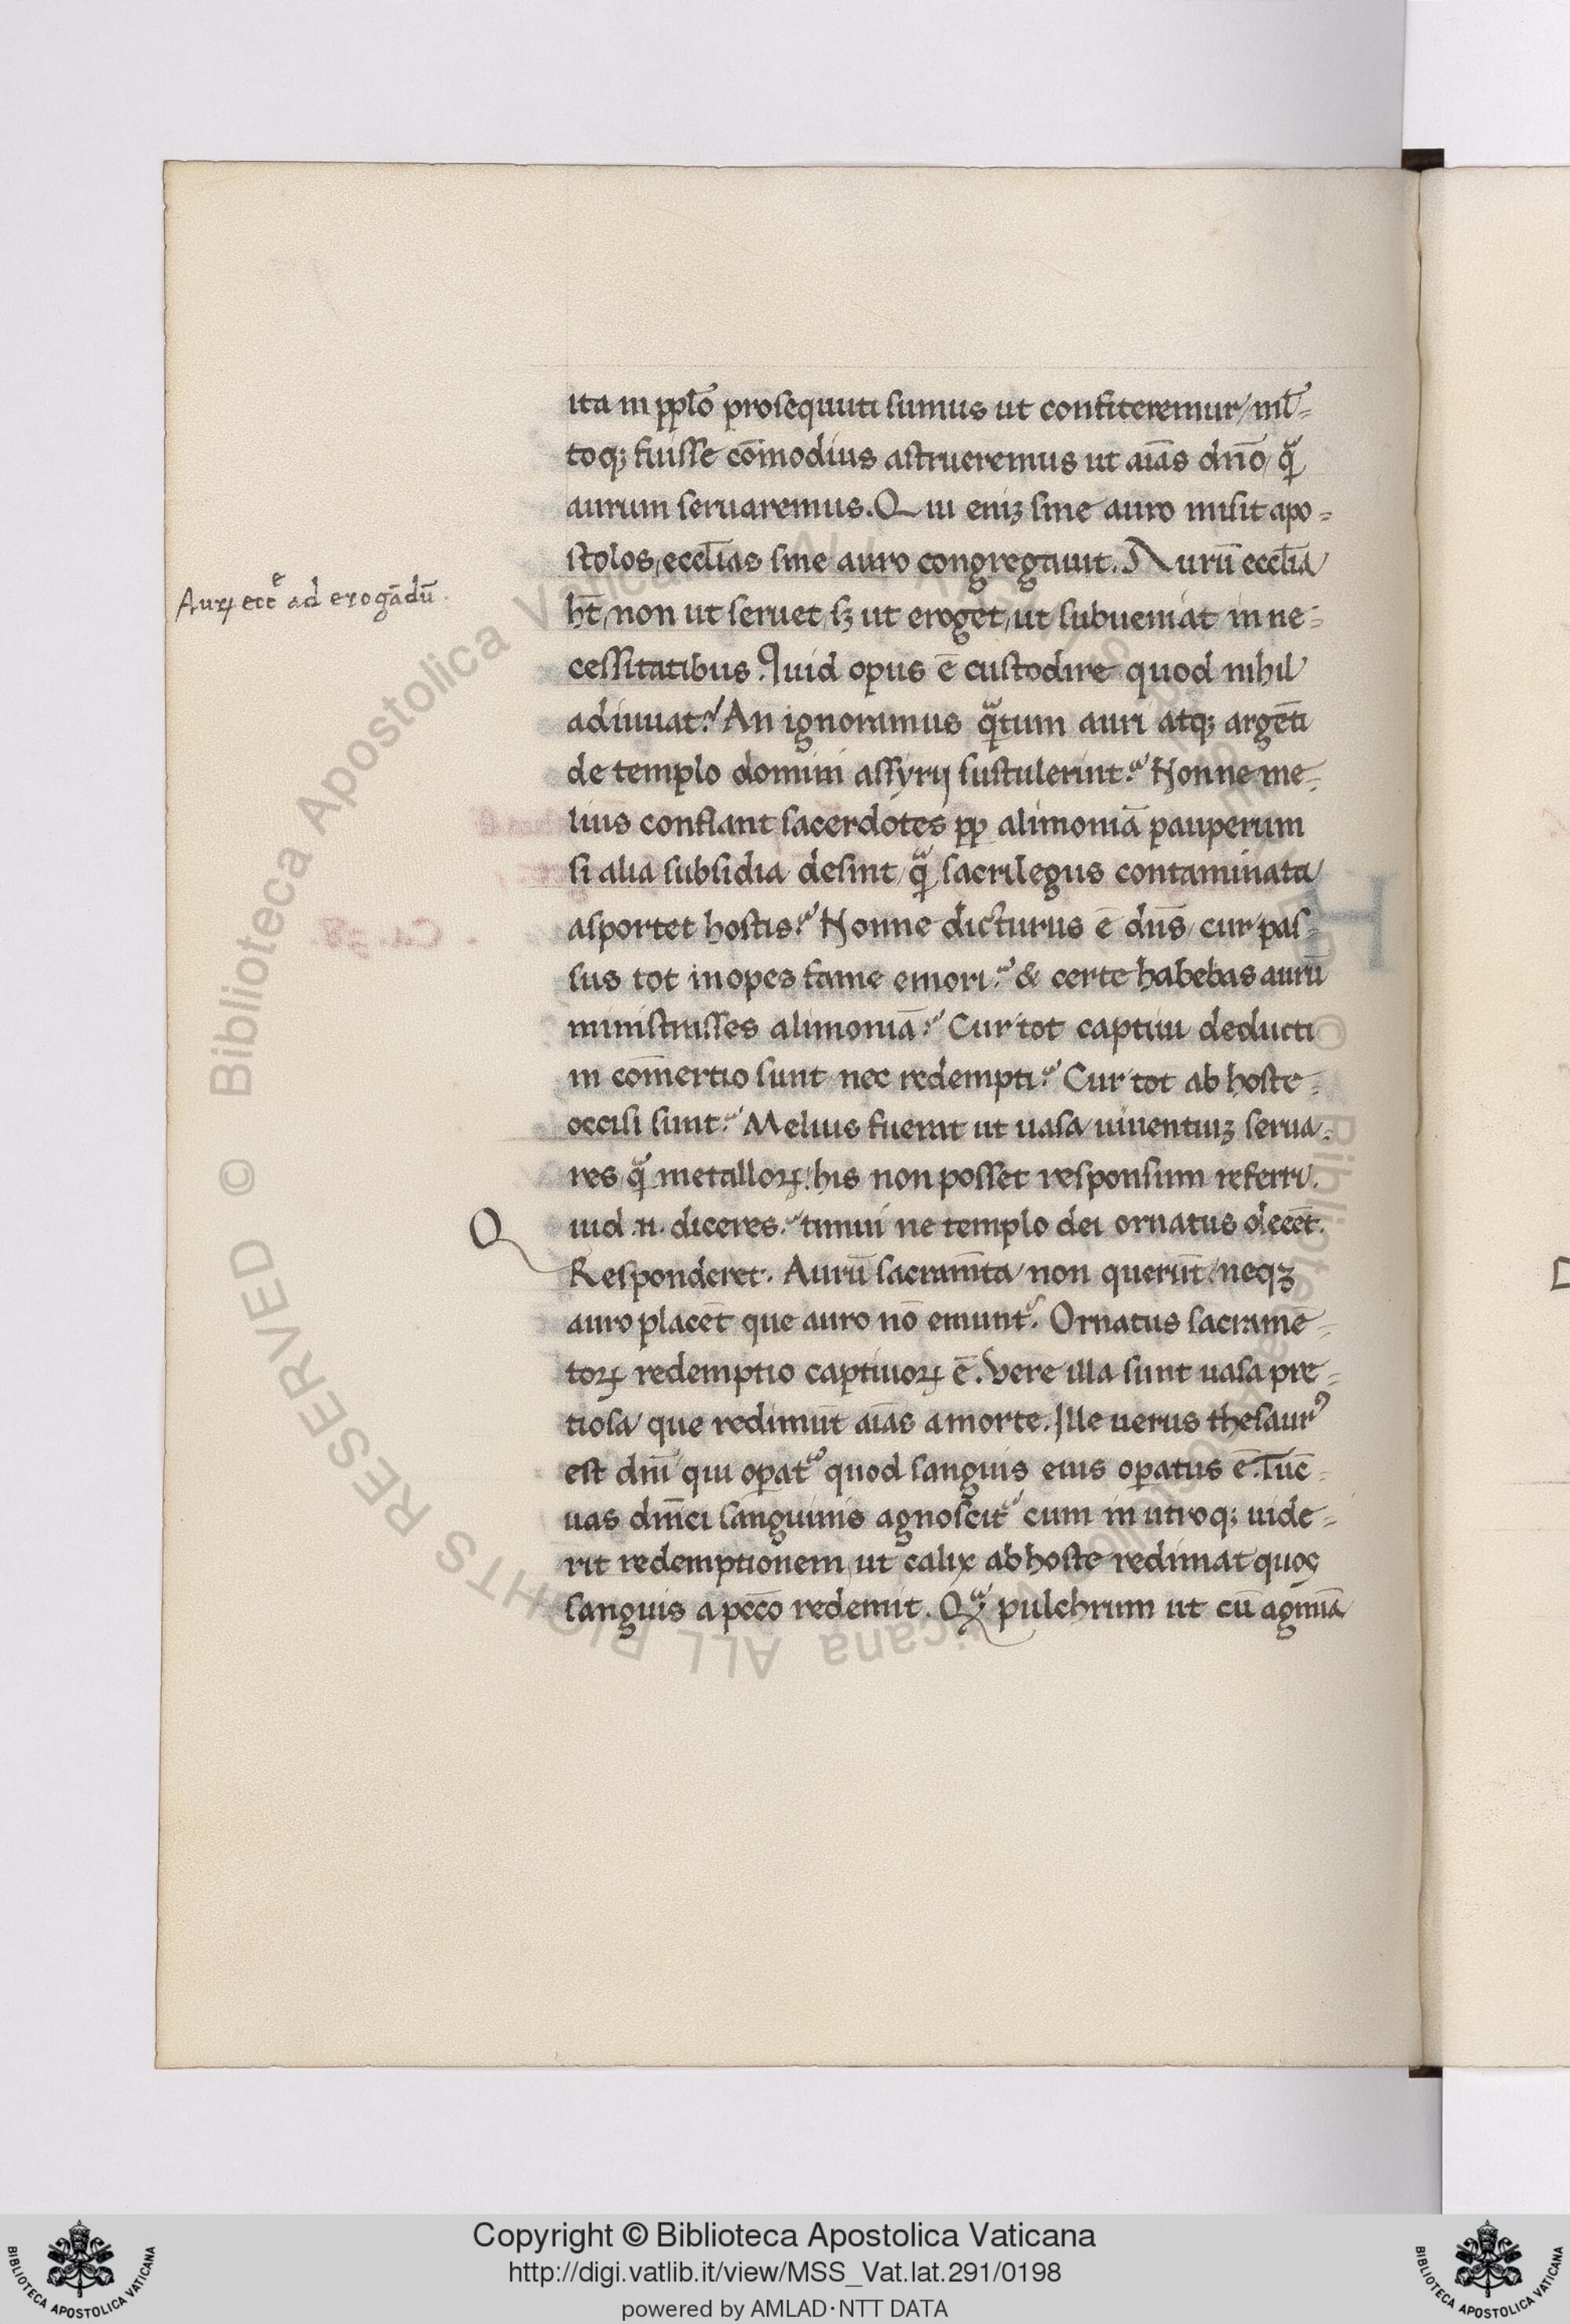 ita in ppl̄o prosequuti sumus ut confiteremur/ ml̄=
toq; fuisse cōmodius astrueremus ut aīas dnō/ qᷓ
aurum seruaremus. Qui eniꝫ sine auro misit apo=
stolos, eccl̄ias sine auro congregauit. Aurū eccl̄ia
ht̄, non ut seruet, sꝫ ut eroget, ut subueniat in ne=
cessitatibus. Quid opus ē custodire quod nihil
adiuuat? An ignoramus qᷓtum auri atq; argēti
de templo domini assyrij sustulerint? Nonne me=
lius conflant sacerdotes pp̱ alimoniā pauperum
si alia subsidia desint/ qᷓ sacrilegus contaminata
asportet hostis? Nonne dicturus ē dn̄s/ cur pas=
sus tot inopes fame emori? & certe habebas aurū
ministrasses alimoniā? Cur tot captiui deducti
in cōmertio sunt nec redempti? Cur tot ab hoste
occisi sunt? Melius fuerat ut uasa uiuentiuꝫ serua=
res qᷓ metalloꝝ. his non posset responsum referri.
Quid .n. diceres. timui ne templo dei ornatus deēet.
Responderet. Aurū sacramn̄ta non querūt/ neqꝫ
auro placēt que auro nō emunt᷑. Ornatus sacramē=
toꝝ redemptio captiuoꝝ ē. Vere illa sunt uasa pre=
tiosa que redimūt aīas a morte. Ille uerus thesaurꝰ
est dn̄i qui oꝑat᷑ quod sanguis eius oꝑatus ē. Tūc
uas dn̄ici sanguinis agnoscit᷑ cum in utroq; uide=
rit redemptionem, ut calix ab hoste redimat quos
sanguis a pccō redemit. Qᷓ pulchrum ut cū agmīa
Auꝝ ecc̄ē ad erogādū.
Copyright © Biblioteca Apostolica Vaticana
http://digi.vatlib.it/view/MSS_Vat.lat.291/0198
powered by AMLAD·NTT DATA
BIBLIOTECA APOSTOLICA VATICANA
BIBLIOTECA APOSTOLICA VATICANA
© Biblioteca Apostolica Vaticana ALL RIGHTS RESERVED